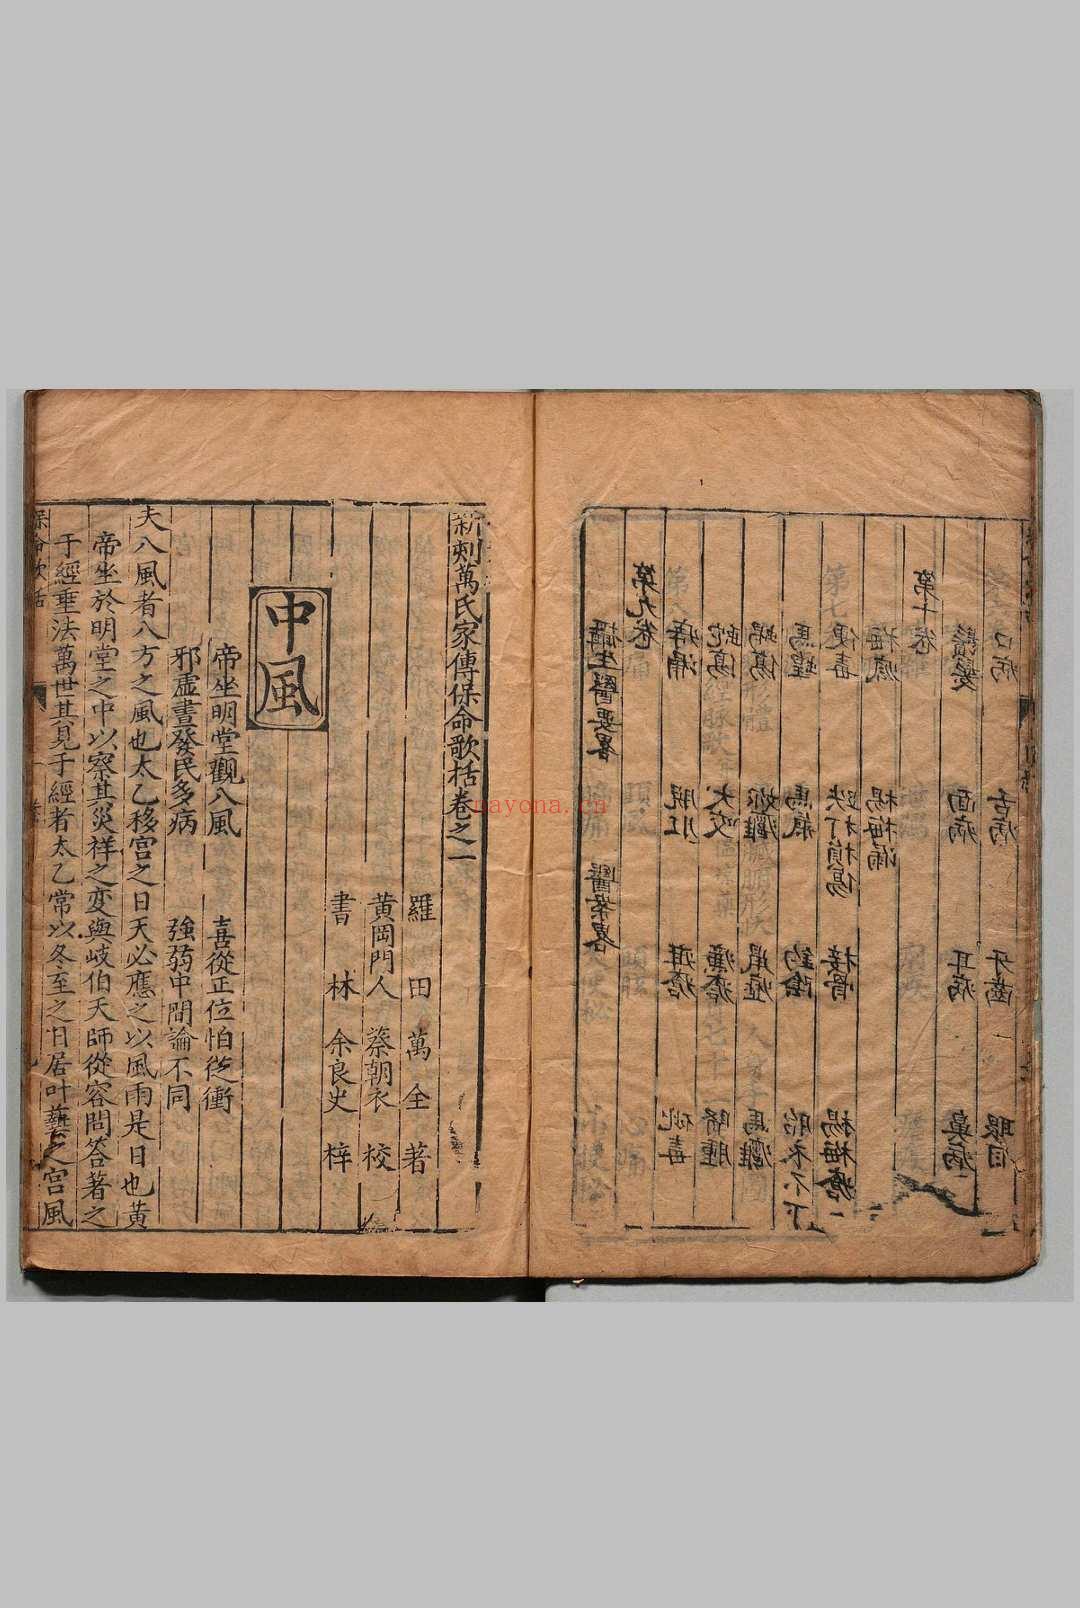 口病 舌病 牙齒 眼目
鬚髮 面病 耳病 鼻病
第十卷
楊梅漏
便毒 跌打損傷 接骨 楊梅瘡
馬蝗 馬氣 胎衣不下
蝎傷
蛇傷 犬咬
痔漏 脫肛 疳瘡 砒毒
第九卷
攝生醫要畧 醫案畧
新刻萬氏家傳保命歌括卷之一
羅田萬全著
黄岡門人蔡朝衣校
書林余良史梓
中風
帝坐明堂觀八風 喜從正位怕從衝
邪虛晝發民多病 強弱中間論不同
夫八風者八方之風也太乙移宮之日天必應之以風雨是日也黄
帝坐於明堂之中以察其災祥之変與岐伯天師從容問答著之
于經垂法萬世其見于經者太乙常以冬至之日居叶蟄之宮風
保命歌括
nayona.cn